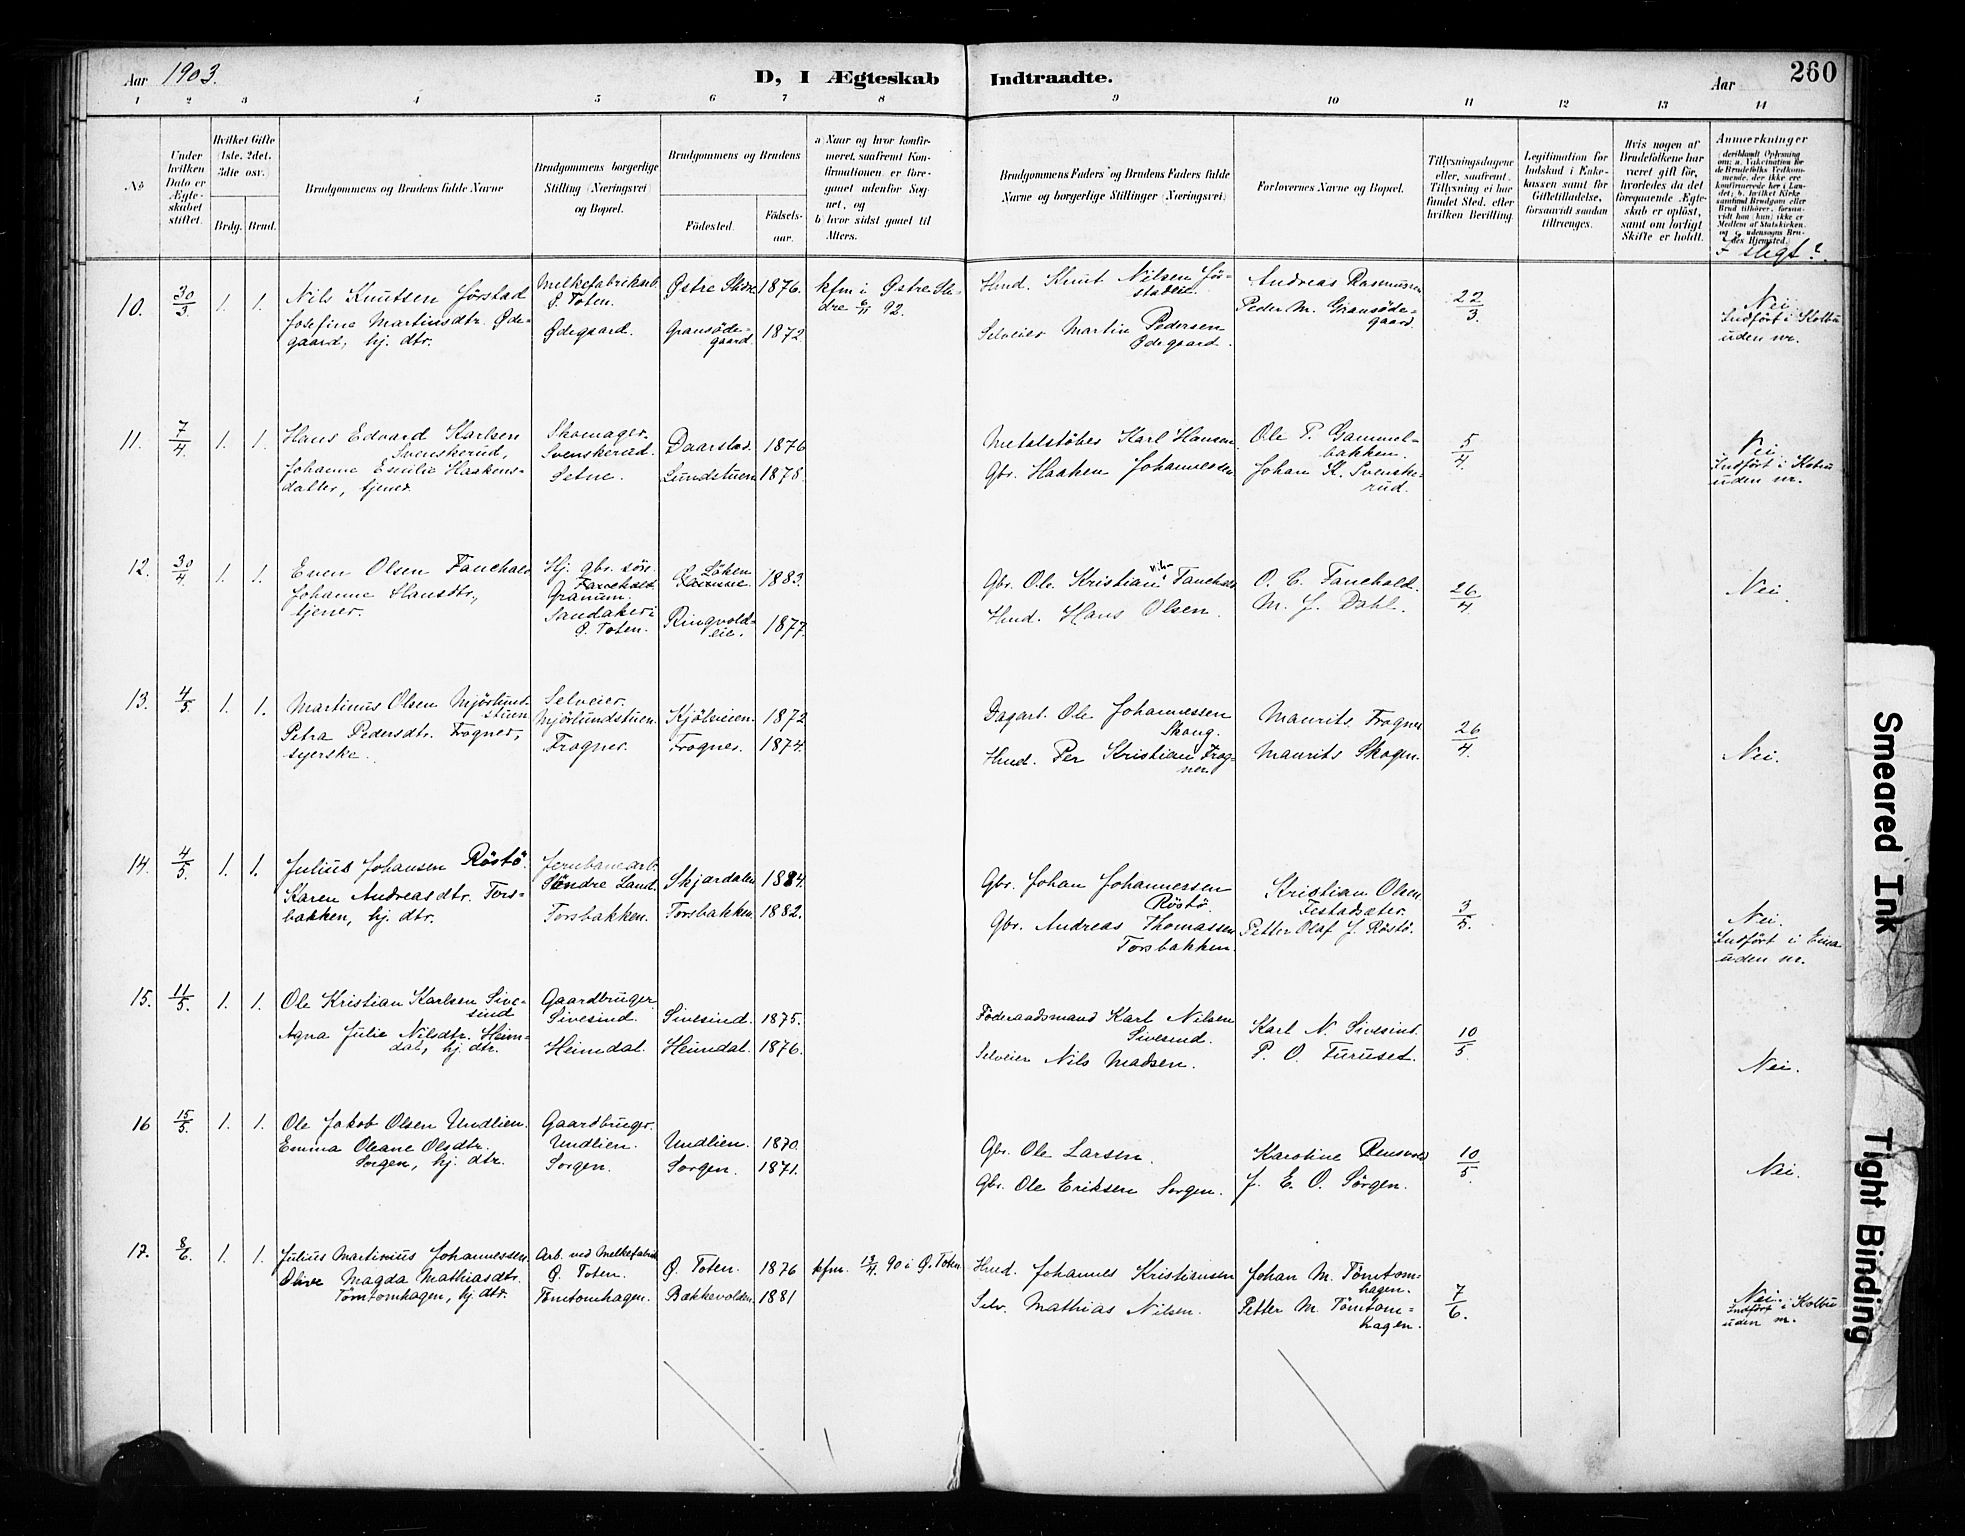 Aar 1903.
D, I Ægteskab
Indtraadte.
Aar
260
1 2 3 4 5 6 7 8 9 10 11 12 13 14
No
Under hvilken Dato er Ægteskabet stiftet.
Hvilket Gifte (1ste, 2det, 3die osv.)
Brdg. Brud.
Brudgommens og Brudens fulde Navne
Brudgommens borgerlige Stilling (Næringsvei) og Bopæl.
Brudgommens og Brudens
Födested. Födselsaar.
a) Naar og hvor konfirmeret, saafremt Konfirmationen er foregaaet udenfor Sognet, og
b) hvor sidst gaaet til Alters.
Brudgommens Faders og Brudens Faders fulde Navne og borgerlige Stillinger (Næringsvei)
Forlovernes Navne og Bopæl.
Tillysningsdagene eller, saafremt Tillysning ei har fundet Sted, efter hvilken Bevilling.
Legitimation for Indskud i Enkekassen samt for Giftetilladelse, forsaavidt saadan tiltrænges.
Hvis nogen af Brudefolkene har været gift før, hvorledes da det foregaaende Ægteskab er opløst, samt om lovligt Skifte er holdt.
Anmerkninger
I slegt?
10. 30/3 1. 1. Nils Knutsen Jörstad
Josefine Martinsdtr. Ödegaard, hj. dtr.
Melkefabrikarb. Ö. Toten.
Ödegaard.
Østre Slidre 1876.
Gransödegaard 1872.
kfm i Østre Slidre 6/11 92.
Hmd. Knut Nilsen Jörstadeie.
Selveier Martin Pedersen Ödegaard.
Andreas Rasmussen
Peder M. Gransödegaard.
22/3.
Nei.
Indfört i Kolbu uden nr.
11. 7/4 1. 1. Hans Edvard Karlsen Svenskerud,
Johanne Emilie Haakensdatter, tjener.
Skomager. Svenskerud.
Setne.
Daarstad. 1876
Lundstuen 1878.
Metalstöber Karl Hansen
Gbr. Haaken Johannessen
Ole P. Gammelbakken.
Johan K. Svenskerud.
5/4.
Nei
Indfört i Kolbu uden nr.
12. 30/4 1. 1. Even Olsen Fauchald
Johanne Hansdtr., tjener.
Hj. gbr. sön. Fauchald Granum.
Sandaker i Ö. Toten.
Löken 1883.
Ringvoldeie. 1877.
Gbr. Ole Kristian Fauchald
Hmd. Hans Olsen.
O. C. Fauchald.
M. J. Dahl.
26/4
Nei.
13. 4/5 1. 1. Martinus Olsen Mjörlundstuen
Petra Pedersdtr. Frogner, syerske.
Selveier. Mjörlundstuen.
Frogner.
Kjölveien. 1872
Frogner. 1874.
Dagarb. Ole Johannessen Skaug.
Hmd. Per Kristian Frogner
Maurits Frogner
Maurits Skogen.
26/4
Nei.
14. 4/5 1. 1. Julius Johansen Röstö.
Karen Andreasdtr. Torsbakken, hj. dtr.
Jernbanearb. Söndre Land.
Torsbakken.
Skjærdalen 1884.
Torsbakken. 1882.
Gbr. Johan Johannessen Röstö.
Gbr. Andreas Thomassen Torsbakken.
Kristian Olsen Festadsæter.
Petter Olaf J. Röstö.
3/5.
Nei.
Indfört i Eina uden nr.
15. 11/5 1. 1. Ole Kristian Karlsen Sivesind
Agna Julie Nilsdtr. Heimdal, hj. dtr.
Gaardbruger Sivesind.
Heimdal.
Sivesind. 1875.
Heimdal. 1876.
Föderaadsmand Karl Nilsen Sivesind.
Selveier Nils Madsen.
Karl N. Sivesind.
P. O. Furuset.
10/5.
Nei.
16 15/5 1. 1. Ole Jakob Olsen Undlien.
Emma Oleane Olsdtr. Sorgen, hj. dtr.
Gaardbruger. Undlien.
Sorgen.
Undlien. 1870.
Sorgen. 1871.
Gbr. Ole Larsen.
Gbr. Ole Eriksen Sorgen.
Karoline Rensvold
J. E. O. Sörgen.
10/5.
Nei.
17. 8/6. 1. 1. Julius Martinius Johannessen
Olive Magda Mathiasdtr. Tömtomhagen, hj. dtr.
Arb. ved Melkefabrik Ö. Toten.
Tömtomhagen.
Ö. Toten. 1876
Bakkevolden 1881
kfm. 13/4. 90 i Ö. Toten.
Hmd. Johannes Kristiansen
Selv. Mathias Nilsen.
Johan M. Tömtomhagen.
Petter M. Tömtomhagen.
7/6.
Nei.
Indfört i Kolbu uden nr.
Smeared Ink
Tight Binding